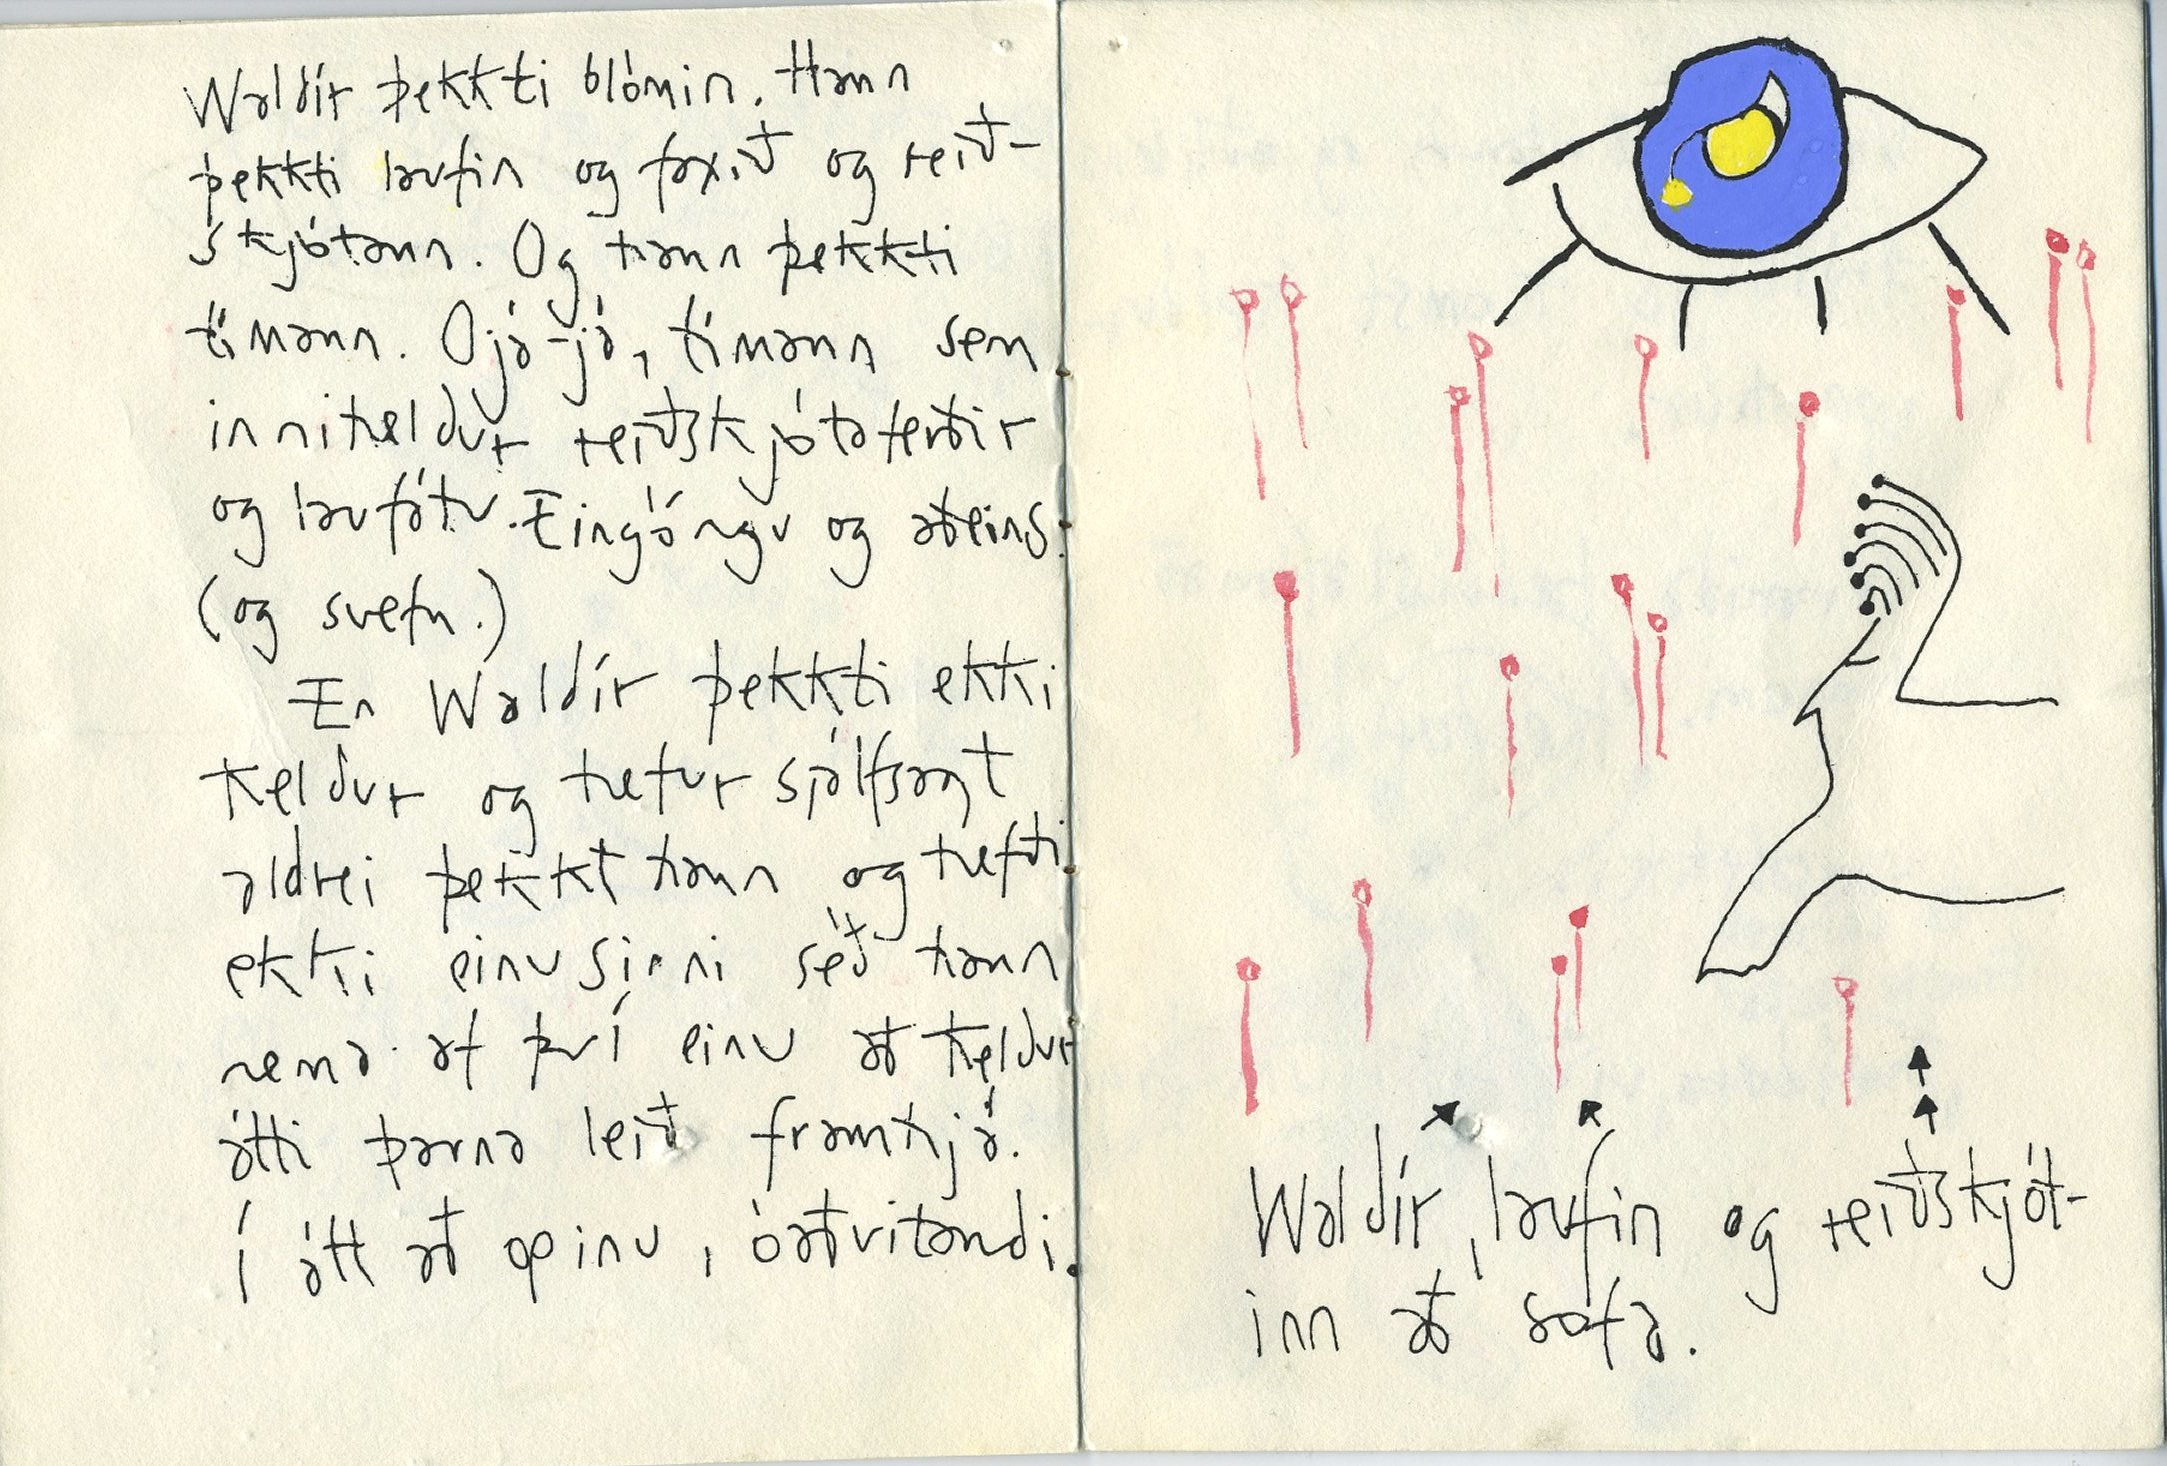 Waldír þekkti blómin. Hann
þekkti laufin og faxið og reið-
skjótann. Og hann þekkti
tímann. Ojá-já, tímann sem
inniheldur reiðskjótaferðir
og laufátu. Eingöngu og aðeins.
(og svefn.)
En Waldír þekkti ekki
Keldur og hefur sjálfsagt
aldrei þekkt hann og hefði
ekki einusinni séð hann
nema af því einu að Keldur
átti þarna leið framhjá.
Í átt að opinu, óaðvitandi.
Waldír, laufin og reiðskjót-
inn að sofa.